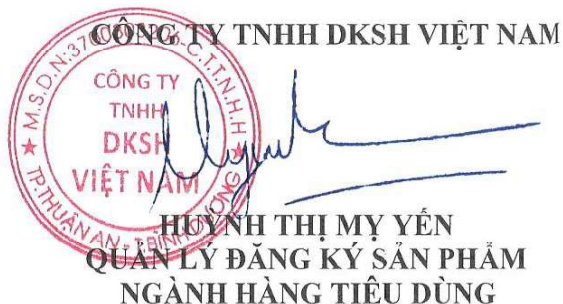 CÔNG TY TNHH DKSH VIỆT NAM
CÔNG TY
TNHH
DKSH
VIỆT NAM
TP.THUẬN AN - T.BÌNH DƯƠNG
HUỲNH THỊ MỴ YẾN
QUẢN LÝ ĐĂNG KÝ SẢN PHẨM
NGÀNH HÀNG TIÊU DÙNG